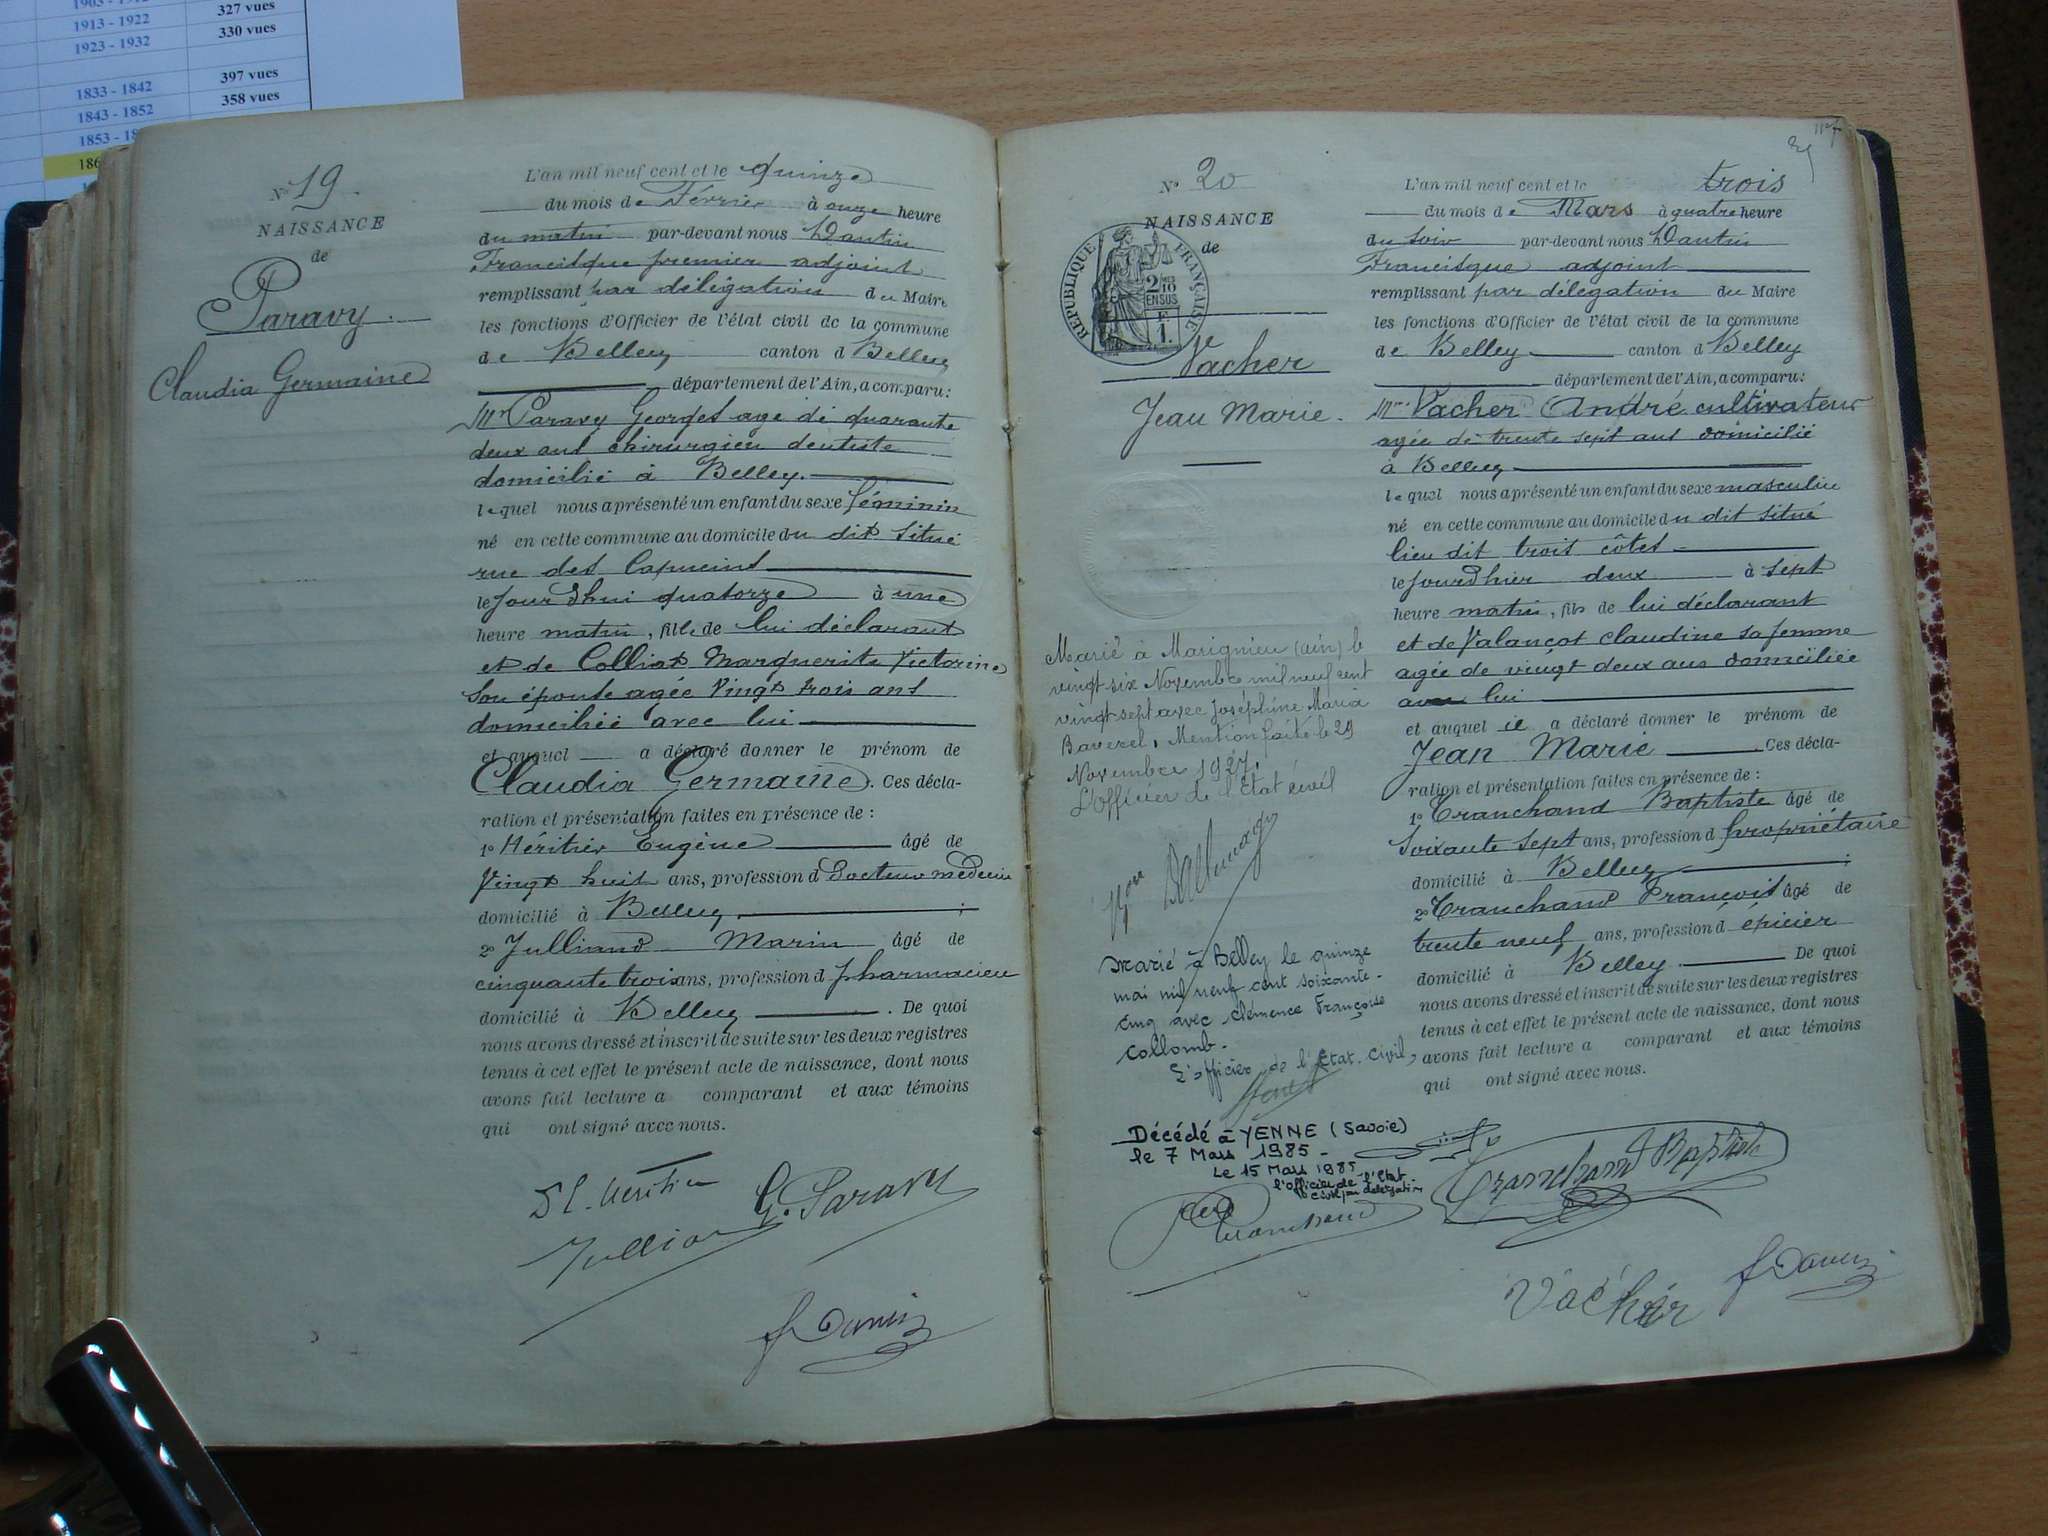 1913 - 1922 327 vues
1923 - 1932 330 vues
397 vues
1833 - 1842 358 vues
1843 - 1852
1853 - 18
186
N° 19
NAISSANCE
de
Paravy
Claudia Germaine
L'an mil neuf cent et le quinze
du mois de Février à onze heure
du matin par-devant nous Dantin
Francisque premier adjoint
remplissant par délégation du Maire
les fonctions d'Officier de l'état civil de la commune
de Belley canton d Belley
département de l'Ain, a comparu:
Mr Paravy Georges agé de quarante
deux ans chirurgien dentiste
domicilié à Belley.
lequel nous a présenté un enfant du sexe féminin
né en cette commune au domicile du dit situé
rue des Capucins
le jourd'hui quatorze à une
heure matin, fille de lui déclarant
et de Colliat Marguerite Victorine
son épouse agée vingt trois ans
domiciliée avec lui
et auquel a déclaré donner le prénom de
Claudia Germaine. Ces décla-
ration et présentation faites en présence de :
1° Héritier Eugène âgé de
Vingt huit ans, profession d Docteur médecin
domicilié à Belley ;
2° Julliand Marin âgé de
cinquante trois ans, profession d pharmacien
domicilié à Belley. De quoi
nous avons dressé et inscrit de suite sur les deux registres
tenus à cet effet le présent acte de naissance, dont nous
avons fait lecture a comparant et aux témoins
qui ont signé avec nous.
G. Paravy
N° 20
NAISSANCE
de
REPUBLIQUE FRANÇAISE
2/10
EN SUS
F
1.
Vacher
Jean Marie.
Marié à Marignieu (ain) le
vingt six Novembre mil neuf cent
vingt sept avec Joséphine Maria
Baverel. Mention faite le 29
Novembre 1927.
L'Officier de l'Etat civil
Marié à Belley le quinze
mai mil neuf cent soixante-
cinq avec Clémence Françoise
Collomb.
L'officier de l'Etat. Civil,
Décédé à YENNE (Savoie)
le 7 Mars 1985 -
Le 15 Mars 1985
l'officier de l'Etat
Civil par délégation
L'an mil neuf cent et le trois
du mois de Mars à quatre heure
du soir par-devant nous Dantin
Francisque adjoint
remplissant par délégation du Maire
les fonctions d'Officier de l'état civil de la commune
de Belley canton d Belley
département de l'Ain, a comparu:
Mr Vacher André cultivateur
agée de trente sept ans domicilié
à Belley
lequel nous a présenté un enfant du sexe masculin
né en cette commune au domicile du dit situé
lieu dit trois côtes
le jourd'hier deux à sept
heure matin, fils de lui déclarant
et de Valançot claudine sa femme
agée de vingt deux ans domiciliée
avec lui
et auquel il a déclaré donner le prénom de
Jean Marie Ces décla-
ration et présentation faites en présence de :
1° Tranchand Baptiste âgé de
Soixante sept ans, profession d propriétaire
domicilié à Belley ;
2° Tranchand François âgé de
trente neuf ans, profession d épicier
domicilié à Belley De quoi
nous avons dressé et inscrit de suite sur les deux registres
tenus à cet effet le présent acte de naissance, dont nous
avons fait lecture a comparant et aux témoins
qui ont signé avec nous.
Tranchand Baptiste
Tranchand
Vacher